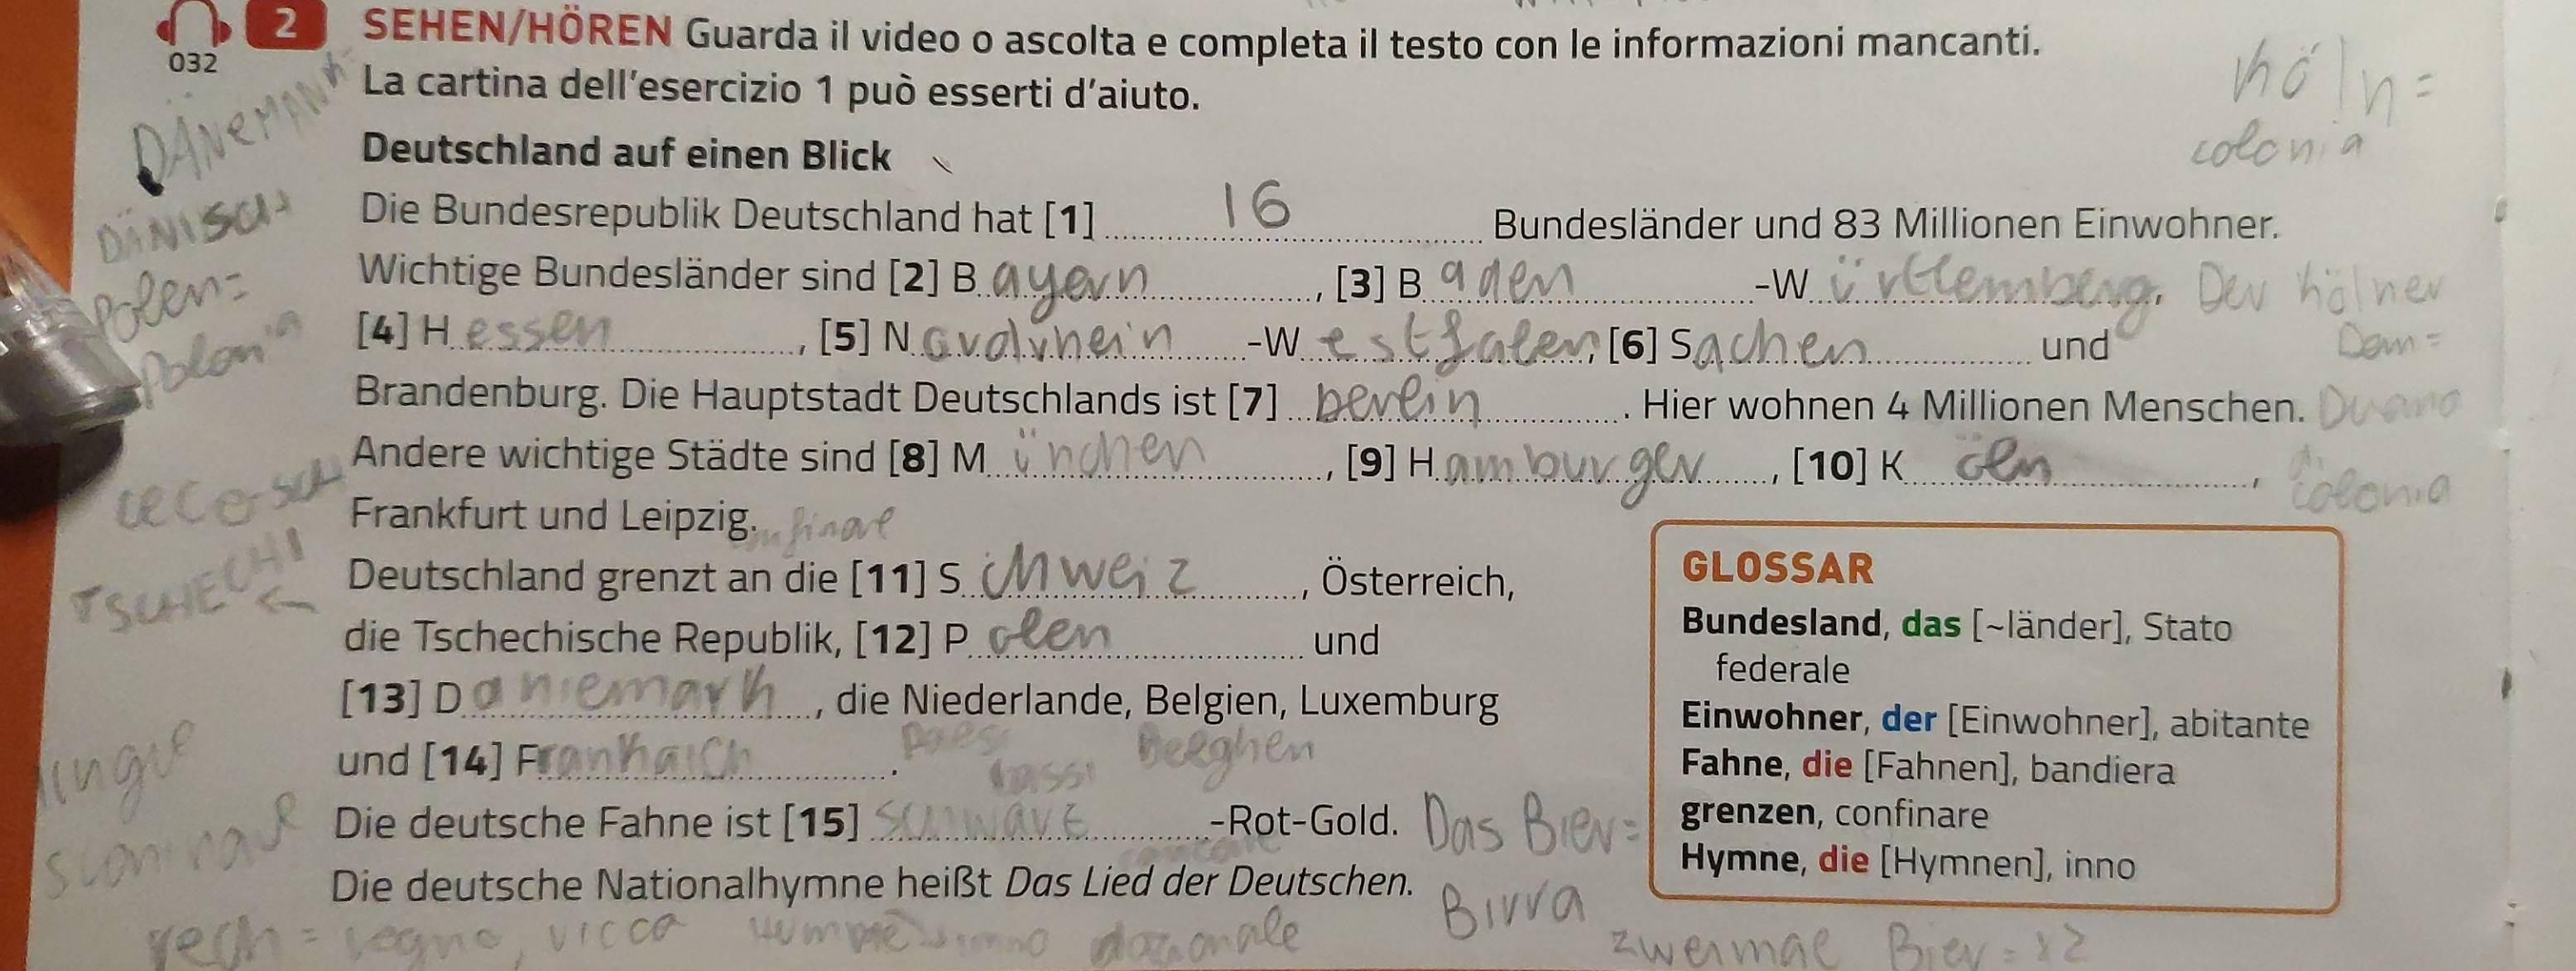 032
2 SEHEN/HÖREN Guarda il video o ascolta e completa il testo con le informazioni mancanti.
La cartina dell'esercizio 1 può esserti d'aiuto.
höln =
colonia
DÄNEMANK
DÄNISCH
Polen =
Polonia
Deutschland auf einen Blick
Die Bundesrepublik Deutschland hat [1] 16 Bundesländer und 83 Millionen Einwohner.
Wichtige Bundesländer sind [2] Bayern, [3] Baden-Württemberg,
[4] Hessen, [5] Nordrhein-Westfalen, [6] Sachen und
Brandenburg. Die Hauptstadt Deutschlands ist [7] berlin. Hier wohnen 4 Millionen Menschen.
Der hölner
Dom =
Duomo
di
colonia
Andere wichtige Städte sind [8] München, [9] Hamburger, [10] Köln,
Frankfurt und Leipzig.
Deutschland grenzt an die [11] Schweiz, Österreich,
TSCHECHI
die Tschechische Republik, [12] Polen und
[13] Daniemark, die Niederlande, Belgien, Luxemburg
Paesi
bassi
Belghen
und [14] Franhaich.
Die deutsche Fahne ist [15] schwarz-Rot-Gold.
Die deutsche Nationalhymne heißt Das Lied der Deutschen.
Das Bier =
Birra
reich = regno, ricco
inno nazionale
zweimal Bier = x2
GLOSSAR
Bundesland, das [~länder], Stato
federale
Einwohner, der [Einwohner], abitante
Fahne, die [Fahnen], bandiera
grenzen, confinare
Hymne, die [Hymnen], inno